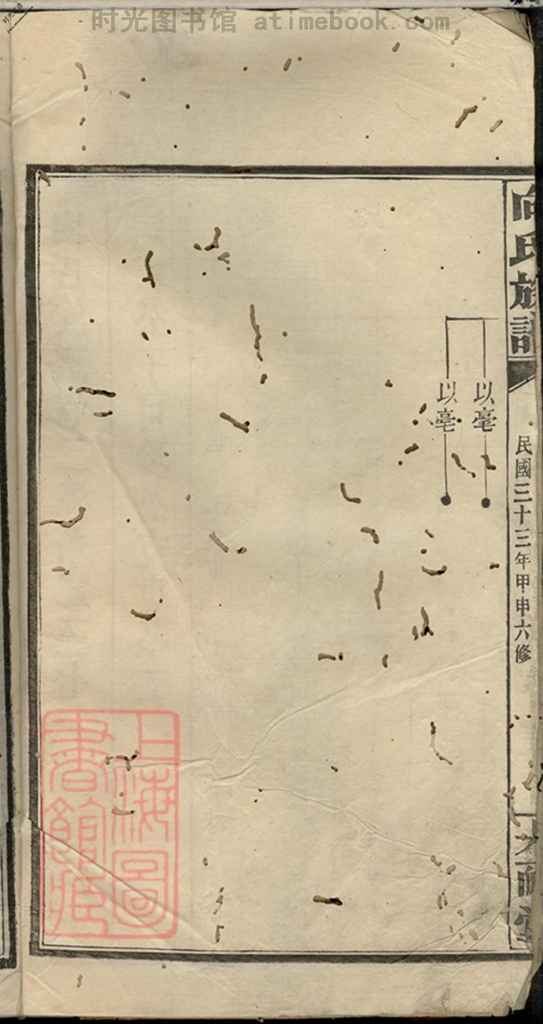 时光图书馆 atimebook.com
向氏族譜
民國三十三年甲申六修
以亳
以亳
上海圖
書館藏